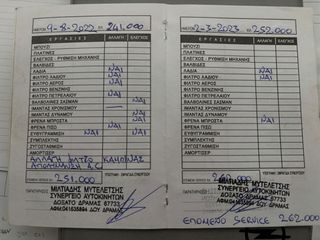 ΗΜΕΡ/ΝΙΑ 9-8-2022 ΚΜ 241.000
ΕΡΓΑΣΙΕΣ ΑΛΛΑΓΗ ΕΛΕΓΧΟΣ
ΜΠΟΥΖΙ
ΠΛΑΤΙΝΕΣ
ΕΛΕΓΧΟΣ - ΡΥΘΜΙΣΗ ΜΗΧΑΝΗΣ
ΒΑΛΒΙΔΕΣ
ΛΑΔΙΑ ΝΑΙ
ΦΙΛΤΡΟ ΛΑΔΙΟΥ ΝΑΙ
ΦΙΛΤΡΟ ΑΕΡΟΣ ΝΑΙ
ΦΙΛΤΡΟ ΒΕΝΖΙΝΗΣ
ΦΙΛΤΡΟ ΠΕΤΡΕΛΑΙΟΥ ΝΑΙ
ΒΑΛΒΟΛΙΝΕΣ ΣΑΣΜΑΝ ΝΑΙ
ΙΜΑΝΤΑΣ ΧΡΟΝΙΣΜΟΥ
ΙΜΑΝΤΑΣ ΔΥΝΑΜΟ
ΦΡΕΝΑ ΜΠΡΟΣΤΑ ΝΑΙ
ΦΡΕΝΑ ΠΙΣΩ ΝΑΙ
ΕΥΘΥΓΡΑΜΜΙΣΗ ΝΑΙ ΝΑΙ
ΣΥΜΠΛΕΚΤΗΣ
ΖΥΓΟΣΤΑΘΜΙΣΗ
ΑΜΟΡΤΙΣΕΡ
ΑΛΛΑΓΗ ΚΑΜΠΙΝΑΣ
A.C
251.000
ΠΑΡΑΤΗΡΗΣΕΙΣ
ΜΙΛΤΙΑΔΗΣ ΜΥΤΕΛΕΤΣΗΣ
ΣΥΝΕΡΓΕΙΟ ΑΥΤΟΚΙΝΗΤΩΝ
ΔΟΞΑΤΟ ΔΡΑΜΑΣ 67733
ΑΦΜ:041835984 ΔΟΥ ΔΡΑΜΑΣ
ΗΜΕΡ/ΝΙΑ 2-3-2023 ΚΜ 252.000
ΕΡΓΑΣΙΕΣ ΑΛΛΑΓΗ ΕΛΕΓΧΟΣ
ΜΠΟΥΖΙ
ΠΛΑΤΙΝΕΣ
ΕΛΕΓΧΟΣ - ΡΥΘΜΙΣΗ ΜΗΧΑΝΗΣ
ΒΑΛΒΙΔΕΣ
ΛΑΔΙΑ ΝΑΙ
ΦΙΛΤΡΟ ΛΑΔΙΟΥ ΝΑΙ
ΦΙΛΤΡΟ ΑΕΡΟΣ ΝΑΙ
ΦΙΛΤΡΟ ΒΕΝΖΙΝΗΣ
ΦΙΛΤΡΟ ΠΕΤΡΕΛΑΙΟΥ
ΒΑΛΒΟΛΙΝΕΣ ΣΑΣΜΑΝ
ΙΜΑΝΤΑΣ ΧΡΟΝΙΣΜΟΥ
ΙΜΑΝΤΑΣ ΔΥΝΑΜΟ
ΦΡΕΝΑ ΜΠΡΟΣΤΑ ΝΑΙ
ΦΡΕΝΑ ΠΙΣΩ
ΕΥΘΥΓΡΑΜΜΙΣΗ
ΣΥΜΠΛΕΚΤΗΣ
ΖΥΓΟΣΤΑΘΜΙΣΗ
ΑΜΟΡΤΙΣΕΡ
ΠΑΡΑΤΗΡΗΣΕΙΣ
ΜΙΛΤΙΑΔΗΣ ΜΥΤΕΛΕΤΣΗΣ
ΣΥΝΕΡΓΕΙΟ ΑΥΤΟΚΙΝΗΤΩΝ
ΔΟΞΑΤΟ ΔΡΑΜΑΣ 67733
ΑΦΜ:041835984 ΔΟΥ ΔΡΑΜΑΣ
ΕΠΟΜΕΝΟ SERVICE 262.000